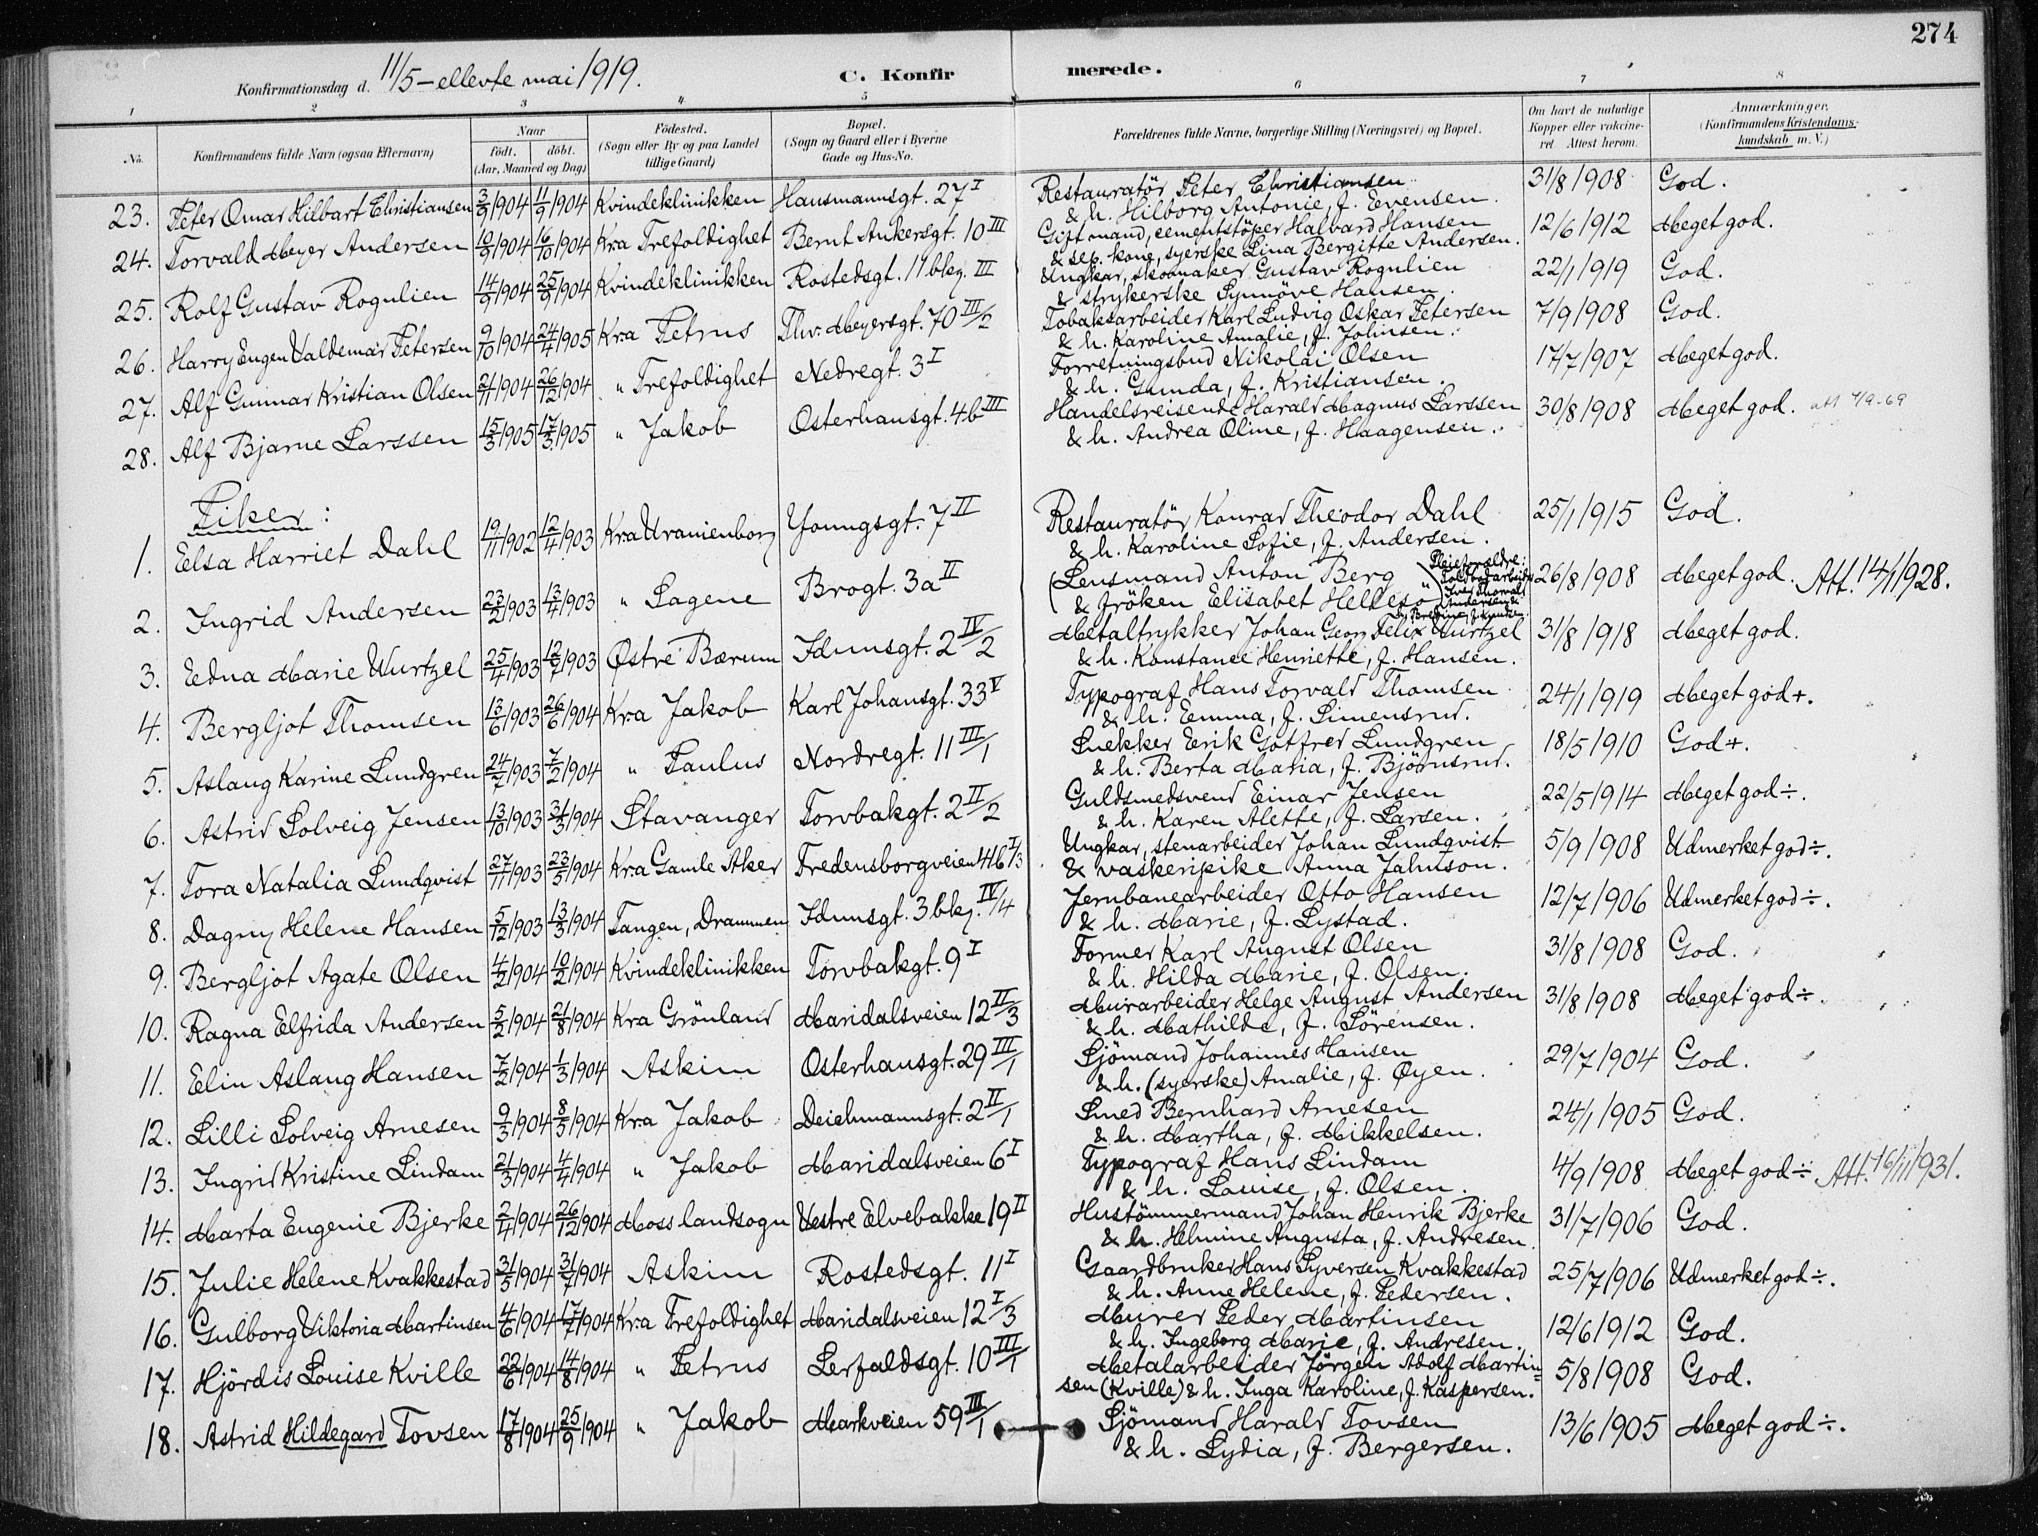 274
Konfirmationsdag d. 11/5 - ellevte mai 1919. C. Konfirmerede.
1 2 3 4 5 6 7 8
No. Konfirmandens fulde Navn (ogsaa Efternavn) Naar født. døbt. (Aar, Maaned og Dag) Fødested. (Sogn eller By og paa Landet tillige Gaard) Bopæl. (Sogn og Gaard eller i Byerne Gade og Hus-No. Forældrenes fulde Navne, borgerlige Stilling (Næringsvei) og Bopæl. Om havt de naturlige Kopper eller vakcineret. Attest herom. Anmærkninger. (Konfirmandens Kristendomskundskab m. V.)
23. Peter Omar Hilbart Christiansen 3/9 1904 11/9 1904 Kvindeklinikken Hausmannsgt. 27 I Restauratör Peter Christiansen 31/8 1908 God.
& h. Hilborg Antonie, f. Evensen.
24. Torvald Meyer Andersen 19/9 1904 16/10 1904 Kra Trefoldighet Bernt Ankersgt. 10 III Gift mand, cementstöper Halvard Hansen 12/6 1912 Meget god.
& sep. kone, syerske Lina Bergitte Andersen.
25. Rolf Gustav Rogulien 14/9 1904 25/9 1904 Kvindeklinikken Rostedsgt. 11 bkg. III Ungkar, skomaker Gustav Rogulien 22/1 1919 God.
& strykerske Synnöve Hansen.
26. Harry Eugen Valdemar Petersen 9/10 1904 24/4 1905 Kra Petrus Thv. Meyersgt. 70 III/2 Tobaksarbeider Karl Ludvig Oskar Petersen 7/9 1908 God.
& h. Karoline Amalie, f. Johnsen.
27. Alf Gunnar Kristian Olsen 21/11 1904 26/12 1904 " Trefoldighet Nedregt. 3 I Forretningsbud Nikolai Olsen 17/7 1907 Meget god.
& h. Gunda, f. Kristiansen.
28. Alf Bjarne Larssen 15/3 1905 17/3 1905 " Jakob Osterhausgt. 4b III Handelsreisende Harald Magnus Larssen 30/8 1908 Meget god. att 4/9-69
& h. Andrea Oline, f. Haagensen.
Piker:
1. Elsa Harriet Dahl 19/11 1902 12/4 1903 Kra Uranienborg Youngsgt. 7 II Restauratör Konrad Theodor Dahl 25/1 1915 God.
& h. Karoline Sofie, f. Andersen.
2. Ingrid Andersen 23/2 1903 13/4 1903 " Sagene Brogt. 3a II (Lensmand Anton Berg 26/8 1908 Meget god. Att. 14/1 1928.
& fröken Elisabet Helleso)
Pleieforældre:
Andersen &
3. Edna Marie Wurtzel 25/4 1903 12/7 1903 Østre Bærum Idunsgt. 2 IV/2 Metaltrykker Johan Georg Felix Wurtzel 31/8 1918 Meget god.
& h. Konstance Henriette, f. Hansen.
4. Bergljot Thomsen 13/6 1903 26/6 1904 Kra Jakob Karl Johansgt. 33 V Typograf Hans Torvald Thomsen 24/1 1919 Meget god+.
& h. Emma, f. Simensrud.
5. Aslaug Karine Lundgren 24/7 1903 7/2 1904 " Paulus Nordregt. 11 III/1 Snekker Erik Gotfred Lundgren 18/5 1910 God+.
& h. Berta Maria, f. Björnsrud.
6. Astrid Solveig Jensen 13/10 1903 31/3 1904 Stavanger Torvbakgt. 2 II/2 Guldsmedsvend Einar Jensen 22/5 1914 Meget god÷.
& h. Karen Alette, f. Larsen.
7. Tora Natalia Lundqvist 27/11 1903 23/5 1904 Kra Gamle Aker Fredensborgveien 46 I/3 Ungkar, stenarbeider Johan Lundqvist 5/9 1908 Udmerket god÷.
& vaskeripike Anna Jahnson.
8. Dagny Helene Hansen 5/12 1903 13/3 1904 Tangen, Drammen Idunsgt. 3 bkg. IV/4 Jernbanearbeider Otto Hansen 12/7 1906 Udmerket god÷.
& h. Marie, f. Lystad.
9. Bergljot Agate Olsen 4/2 1904 10/2 1904 Kvindeklinikken Torvbakgt. 9 I Former Karl August Olsen 31/8 1908 God.
& h. Hilda Marie, f. Olsen.
10. Ragna Elfrida Andersen 5/2 1904 21/8 1904 Kra Grönland Maridalsveien 12 II/3 Murarbeider Helge August Andersen 31/8 1908 Meget god÷.
& h. Mathilde, f. Sörensen.
11. Elin Aslaug Hansen 7/2 1904 1/3 1904 Askim Osterhausgt. 29 III/1 Sjömand Johannes Hansen 29/7 1904 God.
& h. (syerske) Amalie, f. Øyen.
12. Lilli Solveig Arnesen 9/3 1904 8/5 1904 Kra Jakob Deichmannsgt. 2 II/1 Smed Bernhard Arnesen 24/1 1905 God.
& h. Martha, f. Mikkelsen.
13. Ingrid Kristine Lindam 21/3 1904 4/4 1904 " Jakob Maridalsveien 6 I Typograf Hans Lindam 4/9 1908 Meget god÷ Att. 16/11 1931.
& h. Louise, f. Olsen.
14. Marta Eugenie Bjerke 2/4 1904 26/12 1904 Moss landsogn Vestre Elvebakke 19 II Hustömmermand Johan Henrik Bjerke 31/7 1906 God.
& h. Helmine Augusta, f. Andresen.
15. Julie Helene Kvakkestad 31/5 1904 31/7 1904 Askim Rostedsgt. 11 I Gaardbruker Hans Syversen Kvakkestad 25/7 1906 Udmerket god÷.
& h. Anne Helene, f. Pedersen.
16. Gulborg Viktoria Martinsen 4/6 1904 17/7 1904 Kra Trefoldighet Maridalsveien 12 I/3 Murer Peder Martinsen 12/6 1912 God.
& h. Ingeborg Marie, f. Andresen.
17. Hjördis Louise Kville 22/6 1904 14/8 1904 " Petrus Lerfaldsgt. 10 III/1 Metalarbeider Jörgen Adolf Martin= 5/8 1908 God.
sen (Kville) & h. Inga Karoline, f. Kaspersen.
18. Astrid Hildegard Tovsen 17/8 1904 25/9 1904 " Jakob Markveien 59 III/1 Sjömand Harald Tovsen 13/6 1905 Meget god÷.
& h. Lydia, f. Bergersen.